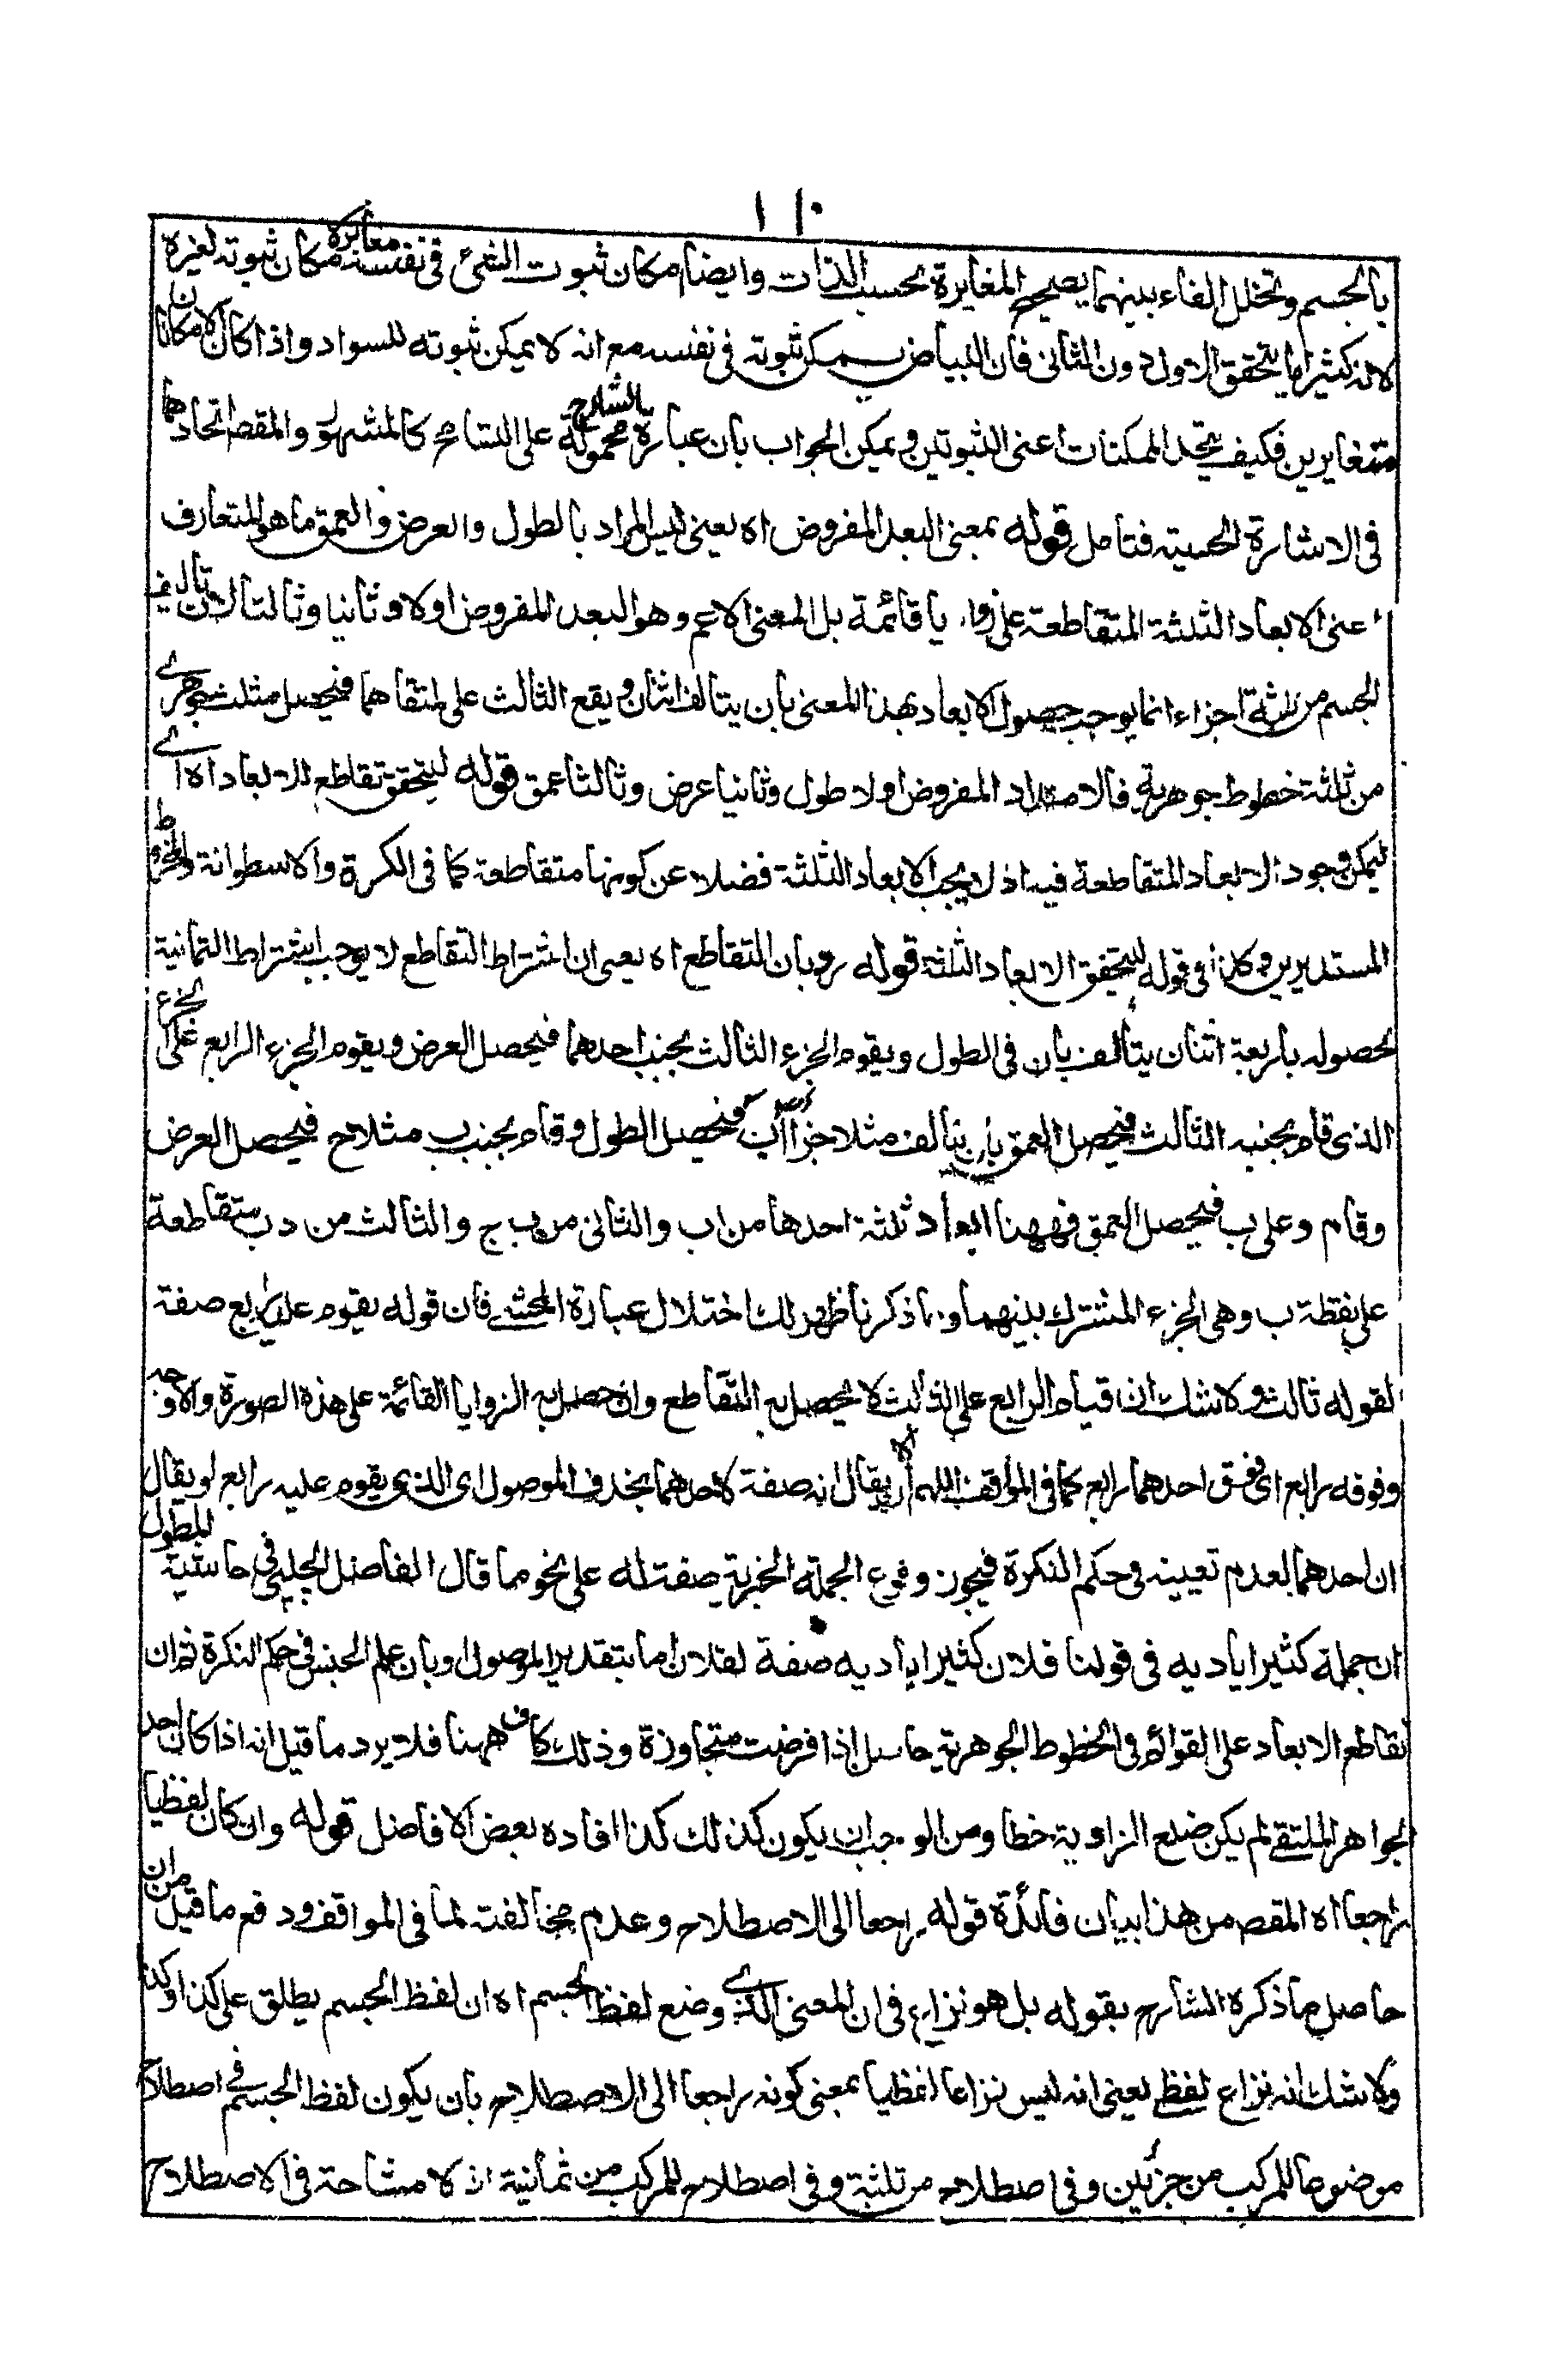 ١١٠
بالجسم وتخلل الفاء بينهما يصحح المغايرة بحسب الذات وايضا امكان ثبوت الشئ فى نفسه مغايرة مكان ثبوته لغيره
لانه كثيرا ما يتحقق الاول دون الثانى فان البياض يمكن ثبوته فى نفسه مع انه لا يمكن ثبوته للسواد واذا كان الامكانان
متغايرين فكيف يتحد الممكنات اعنى الثبوتين ويمكن الجواب بان عبارة الشارح محمولة على التسامح كالمشهور والمقص اتحادهما
فى الاشارة الحسية فتامل قوله بمعنى البعد المفروض اه يعنى ليس المراد بالطول والعرض والعمق ما هو المتعارف
اعنى الابعاد الثلثة المتقاطعة على زوايا قائمة بل المعنى الاعم وهو البعد المفروض اولا وثانيا وثالثا لان تاليف
الجسم من ثلثة اجزاء انما يوجب حصول الابعاد بهذا المعنى بان يتالف اثنان ويقع الثالث على ملتقاهما فيحصل مثلث جوهرى
من ثلثة خطوط جوهرية فالامتداد المفروض اولا طول وثانيا عرض وثالثا عمق قوله ليتحقق تقاطع الابعاد اه اى
ليمكن وجود الابعاد المتقاطعة فيه اذ لا يجب الابعاد الثلثة فضلا عن كونها متقاطعة كما فى الكرة والاسطوانة والمخروط
المستديرين وكذا فى قوله ليتحقق الابعاد الثلثة قوله وبان التقاطع اه يعنى ان اشتراط التقاطع لا يوجب اشتراط الثمانية
لحصوله باربعة اثنان يتالفان فى الطول ويقوم الجزء الثالث بجنب احدهما فيحصل العرض ويقوم الجزء الرابع على الجزء
الذى قام بجنبه الثالث فيحصل العمق بان يتالف مثلا جزأ اب فيحصل الطول وقام بجنب ب مثلا ج فيحصل العرض
وقام د على ب فيحصل العمق فههنا ابعاد ثلثة احدها من اب والثانى من ب ج والثالث من د ب متقاطعة
على نقطة ب وهى الجزء المشترك بينهما وبما ذكرنا ظهر لك اختلال عبارة المحشى فان قوله يقوم عليه رابع صفة
لقوله ثالث ولا شك ان قيام الرابع على الثالث لا يحصل به التقاطع وان حصل به الزوايا القائمة على هذه الصورة والاوجه
وفوقه رابع اى فوق احدهما رابع كما فى المواقف اللهم الا ان يقال انه صفة لاحدهما بحذف الموصول اى الذى يقوم عليه رابع او يقال
ان احدهما لعدم تعيينه فى حكم النكرة فيجوز وقوع الجملة الخبرية صفة له على نحو ما قال الفاضل الچلپى فى حاشية المطول
ان جملة كثير اياديه فى قولنا فلان كثير اياديه صفة لفلان اما بتقدير الموصول او بان علم الجنس فى حكم النكرة ثم ان
تقاطع الابعاد على القوائم فى الخطوط الجوهرية حاصل اذا فرضت متجاوزة وذلك كاف ههنا فلا يرد ما قيل انه اذا كان احد
الجواهر الملتقى لم يكن ضلع الزاوية خطا ومن الواجب ان يكون كذلك كذا افاده بعض الافاضل قوله وان كان لفظيا
راجعا اه المقص من هذا بيان فائدة قوله راجعا الى الاصطلاح وعدم مخالفته لما فى المواقف ودفع ما قيل من ان
حاصل ما ذكره الشارح بقوله بل هو نزاع فى ان المعنى الذى وضع لفظ الجسم اه ان لفظ الجسم يطلق على كذا او كذا
ولا شك انه نزاع لفظى يعنى انه ليس نزاعا لفظيا بمعنى كونه راجعا الى الاصطلاح بان يكون لفظ الجسم فى اصطلاح
موضوعا للمركب من جزئين وفى اصطلاح من ثلثة وفى اصطلاح للمركب من ثمانية اذ لا مشاحة فى الاصطلاح